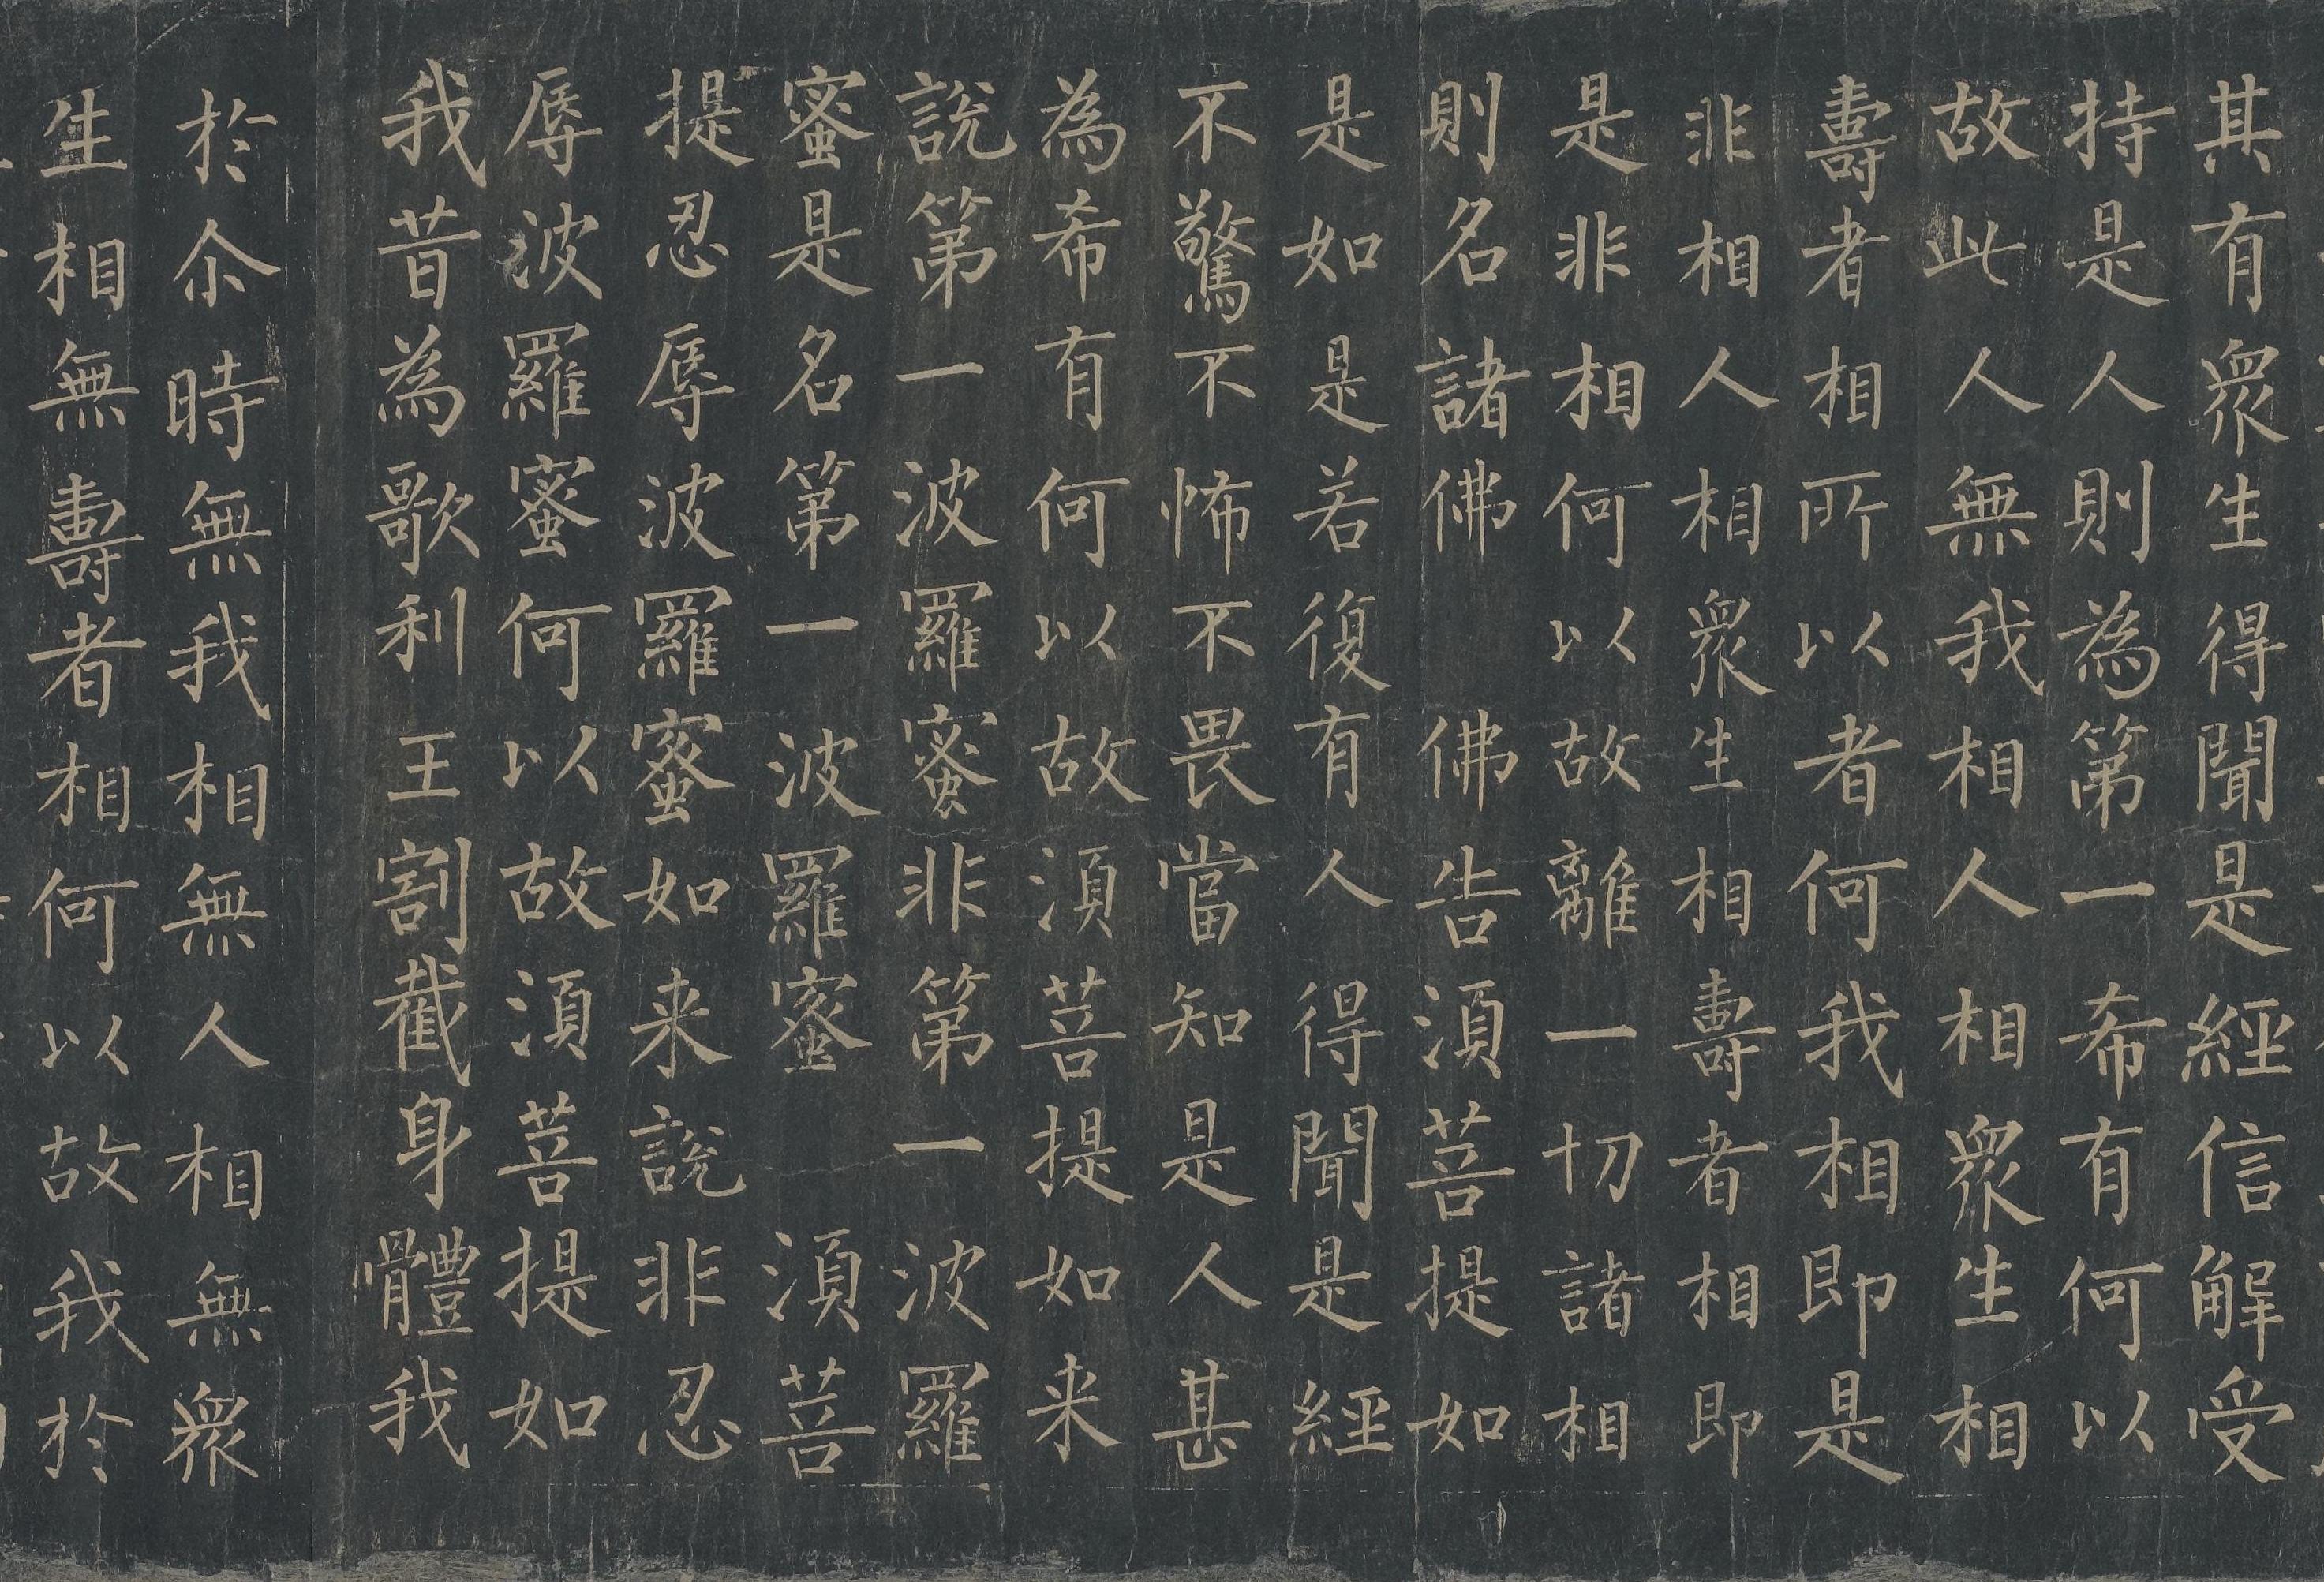 其有眾生得聞是經信解受
持是人則為第一希有何以
故此人無我相人相眾生相
壽者相所以者何我相即是
非相人相眾生相壽者相即
是非相何以故離一切諸相
則名諸佛 佛告須菩提如
是如是若復有人得聞是經
不驚不怖不畏當知是人甚
為希有何以故須菩提如来
說第一波羅蜜非第一波羅
蜜是名第一波羅蜜 須菩
提忍辱波羅蜜如来說非忍
辱波羅蜜何以故須菩提如
我昔為歌利王割截身體我
於尒時無我相無人相無眾
生相無壽者相何以故我於